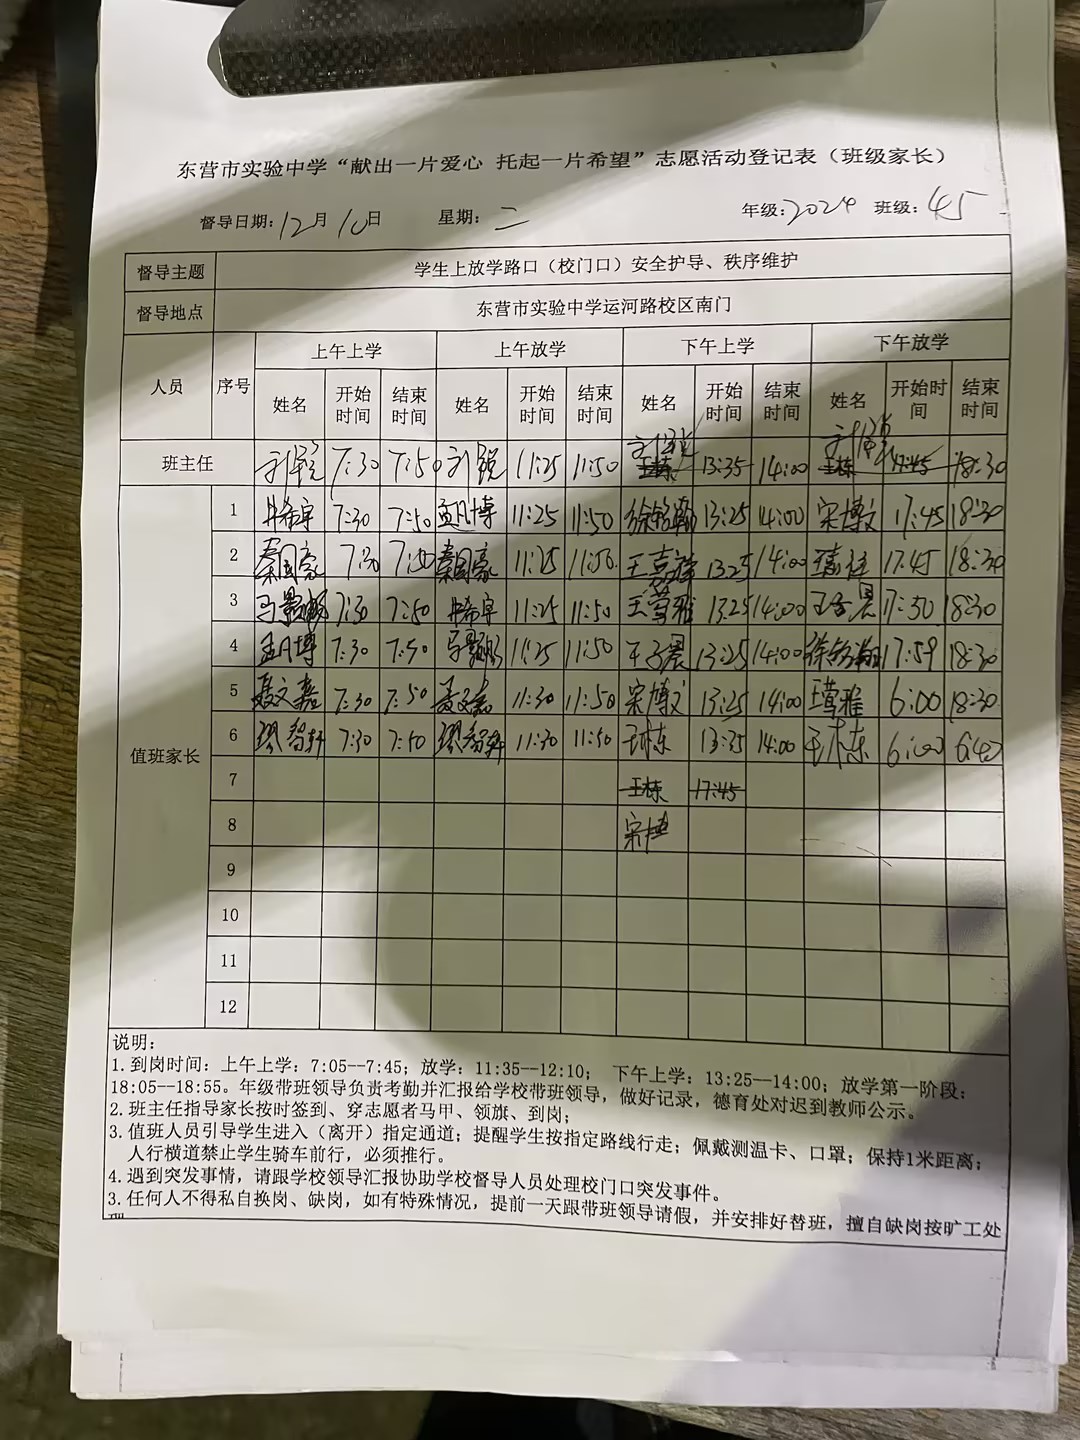 东营市实验中学“献出一片爱心 托起一片希望”志愿活动登记表（班级家长）
督导日期：12月10日 星期：二 年级：2024 班级：45
督导主题 学生上放学路口（校门口）安全护导、秩序维护
督导地点 东营市实验中学运河路校区南门
人员 序号 上午上学 上午放学 下午上学 下午放学
姓名 开始时间 结束时间 姓名 开始时间 结束时间 姓名 开始时间 结束时间 姓名 开始时间 结束时间
班主任 7:30 7:50 11:25 11:50 王栋 13:35 14:00 王栋 17:45 18:30
值班家长
1 牛希卓 7:30 7:50 孟凡博 11:25 11:50 徐铭瀚 13:25 14:00 宋博文 17:45 18:30
2 秦国豪 7:30 7:50 秦国豪 11:25 11:50 王嘉祥 13:25 14:00 17:45 18:30
3 7:30 7:50 牛希卓 11:25 11:50 王莺雅 13:25 14:00 王子晨 17:50 18:30
4 孟凡博 7:30 7:50 11:25 11:50 王子晨 13:25 14:00 徐铭瀚 17:59 18:30
5 聂文嘉 7:30 7:50 聂文嘉 11:30 11:50 宋博文 13:25 14:00 王莺雅 6:00 18:30
6 7:30 7:50 11:30 11:50 13:25 14:00 6:00 6:40
7 王栋 17:45
8 宋博
9
10
11
12
说明：
1. 到岗时间：上午上学：7:05--7:45；放学：11:35--12:10； 下午上学：13:25--14:00；放学第一阶段：
18:05--18:55。年级带班领导负责考勤并汇报给学校带班领导，做好记录，德育处对迟到教师公示。
2. 班主任指导家长按时签到、穿志愿者马甲、领旗、到岗；
3. 值班人员引导学生进入（离开）指定通道；提醒学生按指定路线行走；佩戴测温卡、口罩；保持1米距离；
人行横道禁止学生骑车前行，必须推行。
4. 遇到突发事情，请跟学校领导汇报协助学校督导人员处理校门口突发事件。
3. 任何人不得私自换岗、缺岗，如有特殊情况，提前一天跟带班领导请假，并安排好替班，擅自缺岗按旷工处